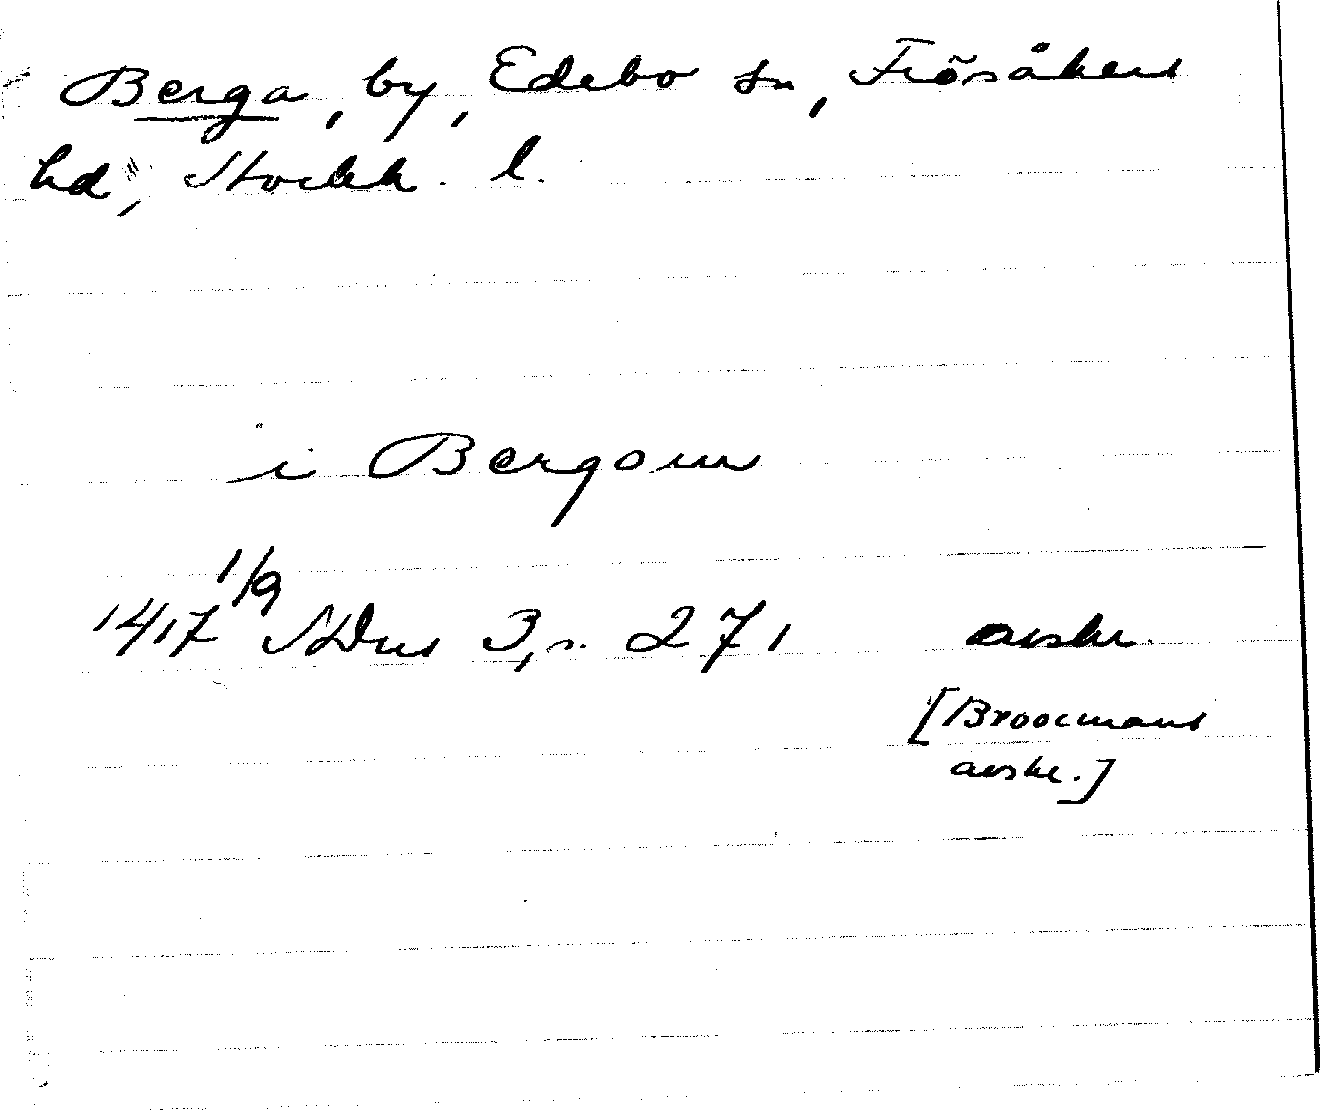 Berga, by, Edebo sn, Frösåkers
hd, Stockh. l.
i Bergom
1417 1/9 SDns 3, s. 271 avskr.
[Broocmans
avskr.]